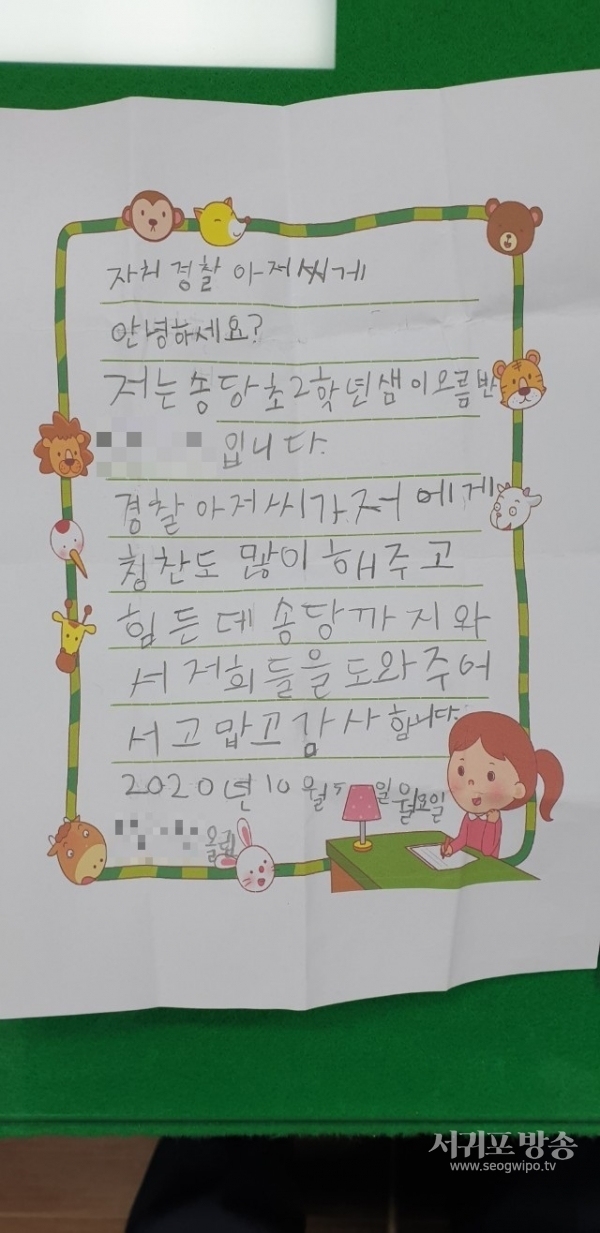 자치 경찰 아저씨께
안녕하세요?
저는 송당초 2학년 샘이오름반
입니다.
경찰 아저씨가 저에게
칭찬도 많이 해주고
힘든데 송당까지와
서 저희들을 도와주어
서 고맙고 감사합니다.
2020년 10월 5일 월요일
올림
서귀포방송
www.seogwipo.tv